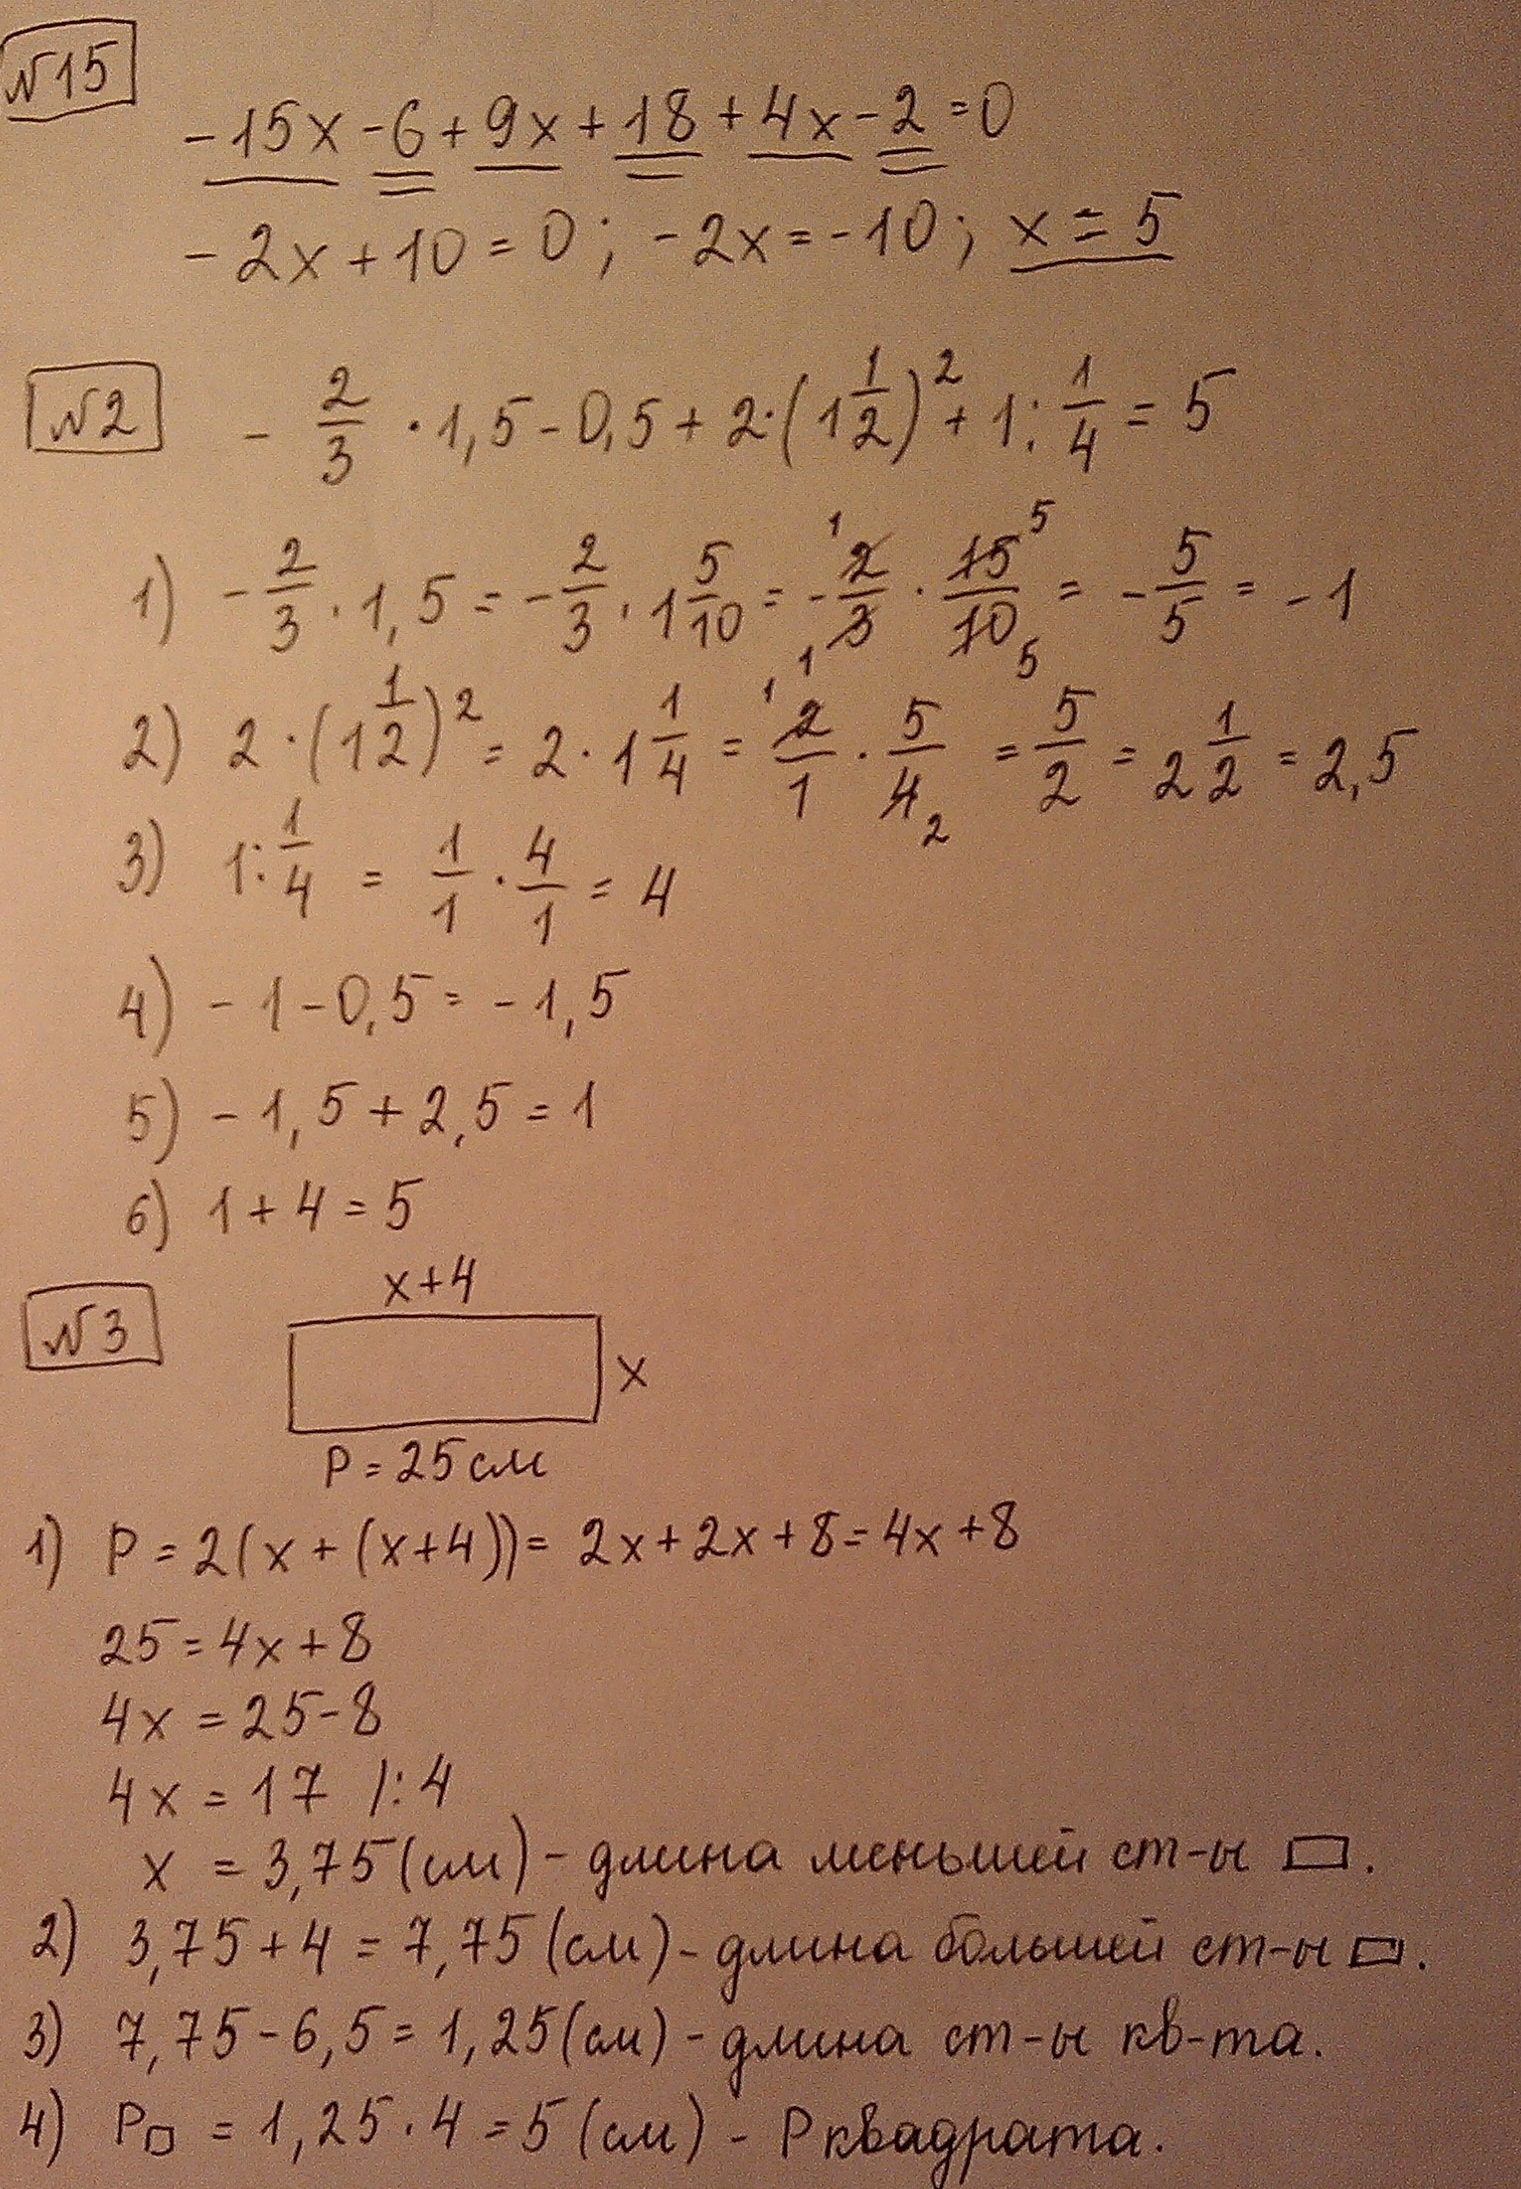 №15
-15x-6+9x+18+4x-2=0
-2x+10=0; -2x=-10; x=5
№2
- 2/3 · 1,5 - 0,5 + 2·(1 1/2)² + 1 : 1/4 = 5
1) - 2/3 · 1,5 = - 2/3 · 1 5/10 = - 2/3 · 15/10 = - 5/5 = -1
2) 2 · (1 1/2)² = 2 · 1 1/4 = 2/1 · 5/4 = 5/2 = 2 1/2 = 2,5
3) 1 : 1/4 = 1/1 · 4/1 = 4
4) -1-0,5 = -1,5
5) -1,5+2,5=1
6) 1+4=5
x+4
№3
x
P=25см
1) P=2(x+(x+4))=2x+2x+8=4x+8
25=4x+8
4x=25-8
4x=17 /:4
x=3,75(см)-длина меньшей ст-ы ▭.
2) 3,75+4=7,75(см)-длина большей ст-ы ▭.
3) 7,75-6,5=1,25(см)-длина ст-ы кв-та.
4) P□=1,25·4=5(см)-Pквадрата.